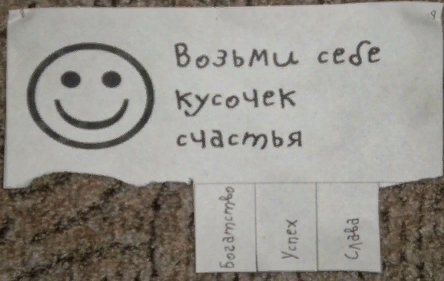 Возьми себе
кусочек
счастья
Богатство
Успех
Слава